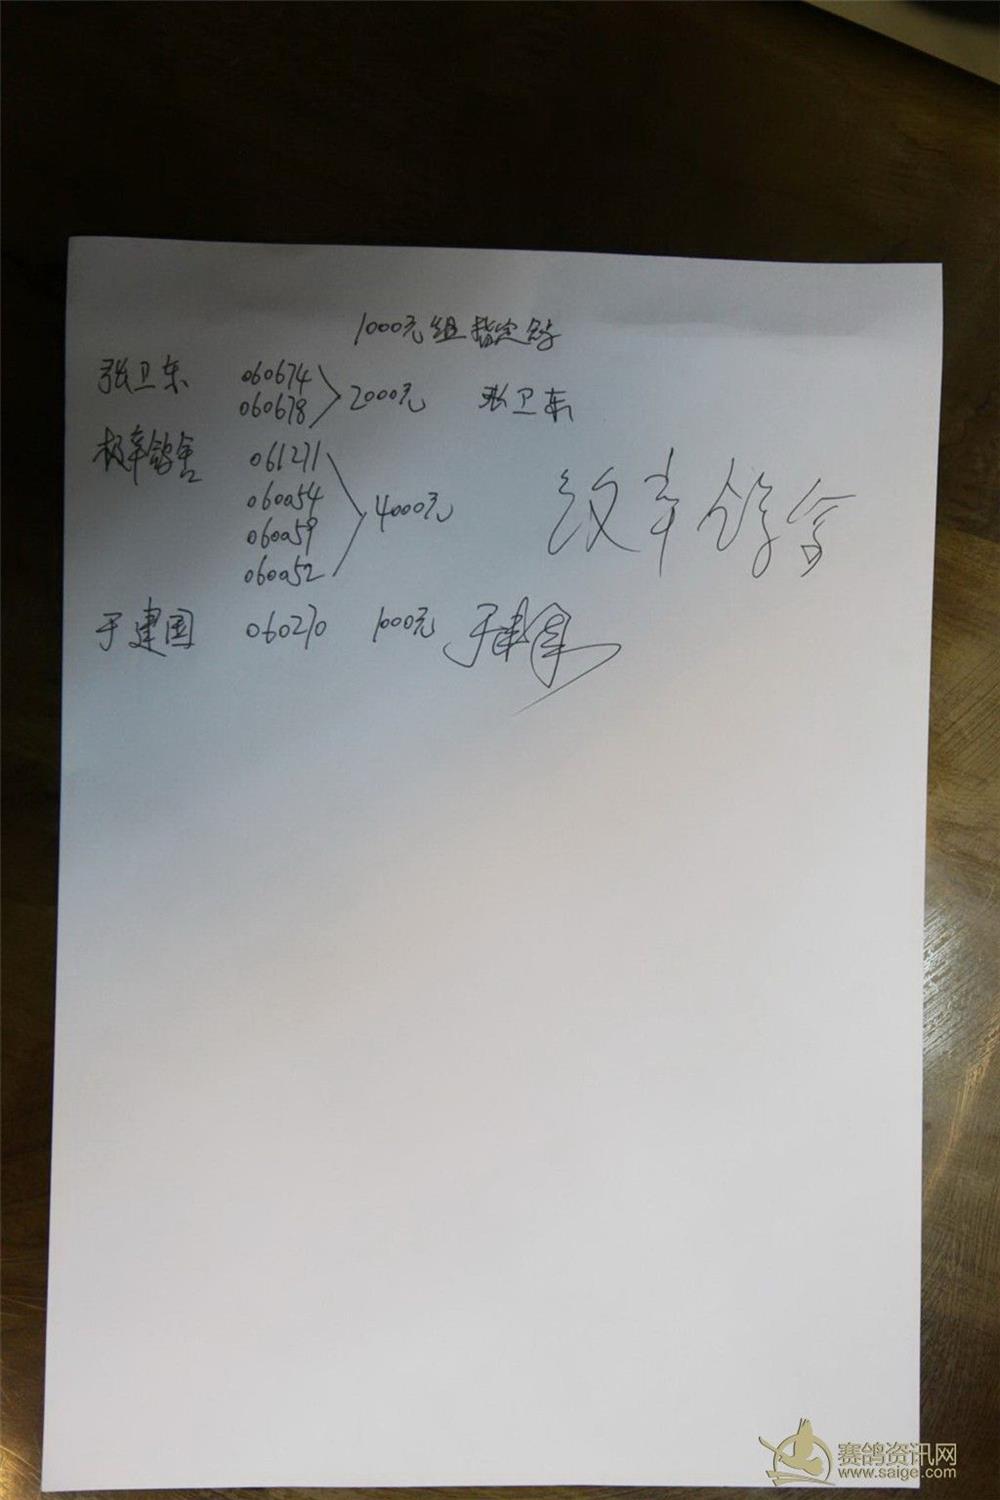 1000元组指定鸽
张卫东 060674 2000元 张卫东
060678
鸽舍 061271 4000元 鸽舍
060054
060059
060052
于建国 060270 1000元 于建国
赛鸽资讯网
www.saigel.com